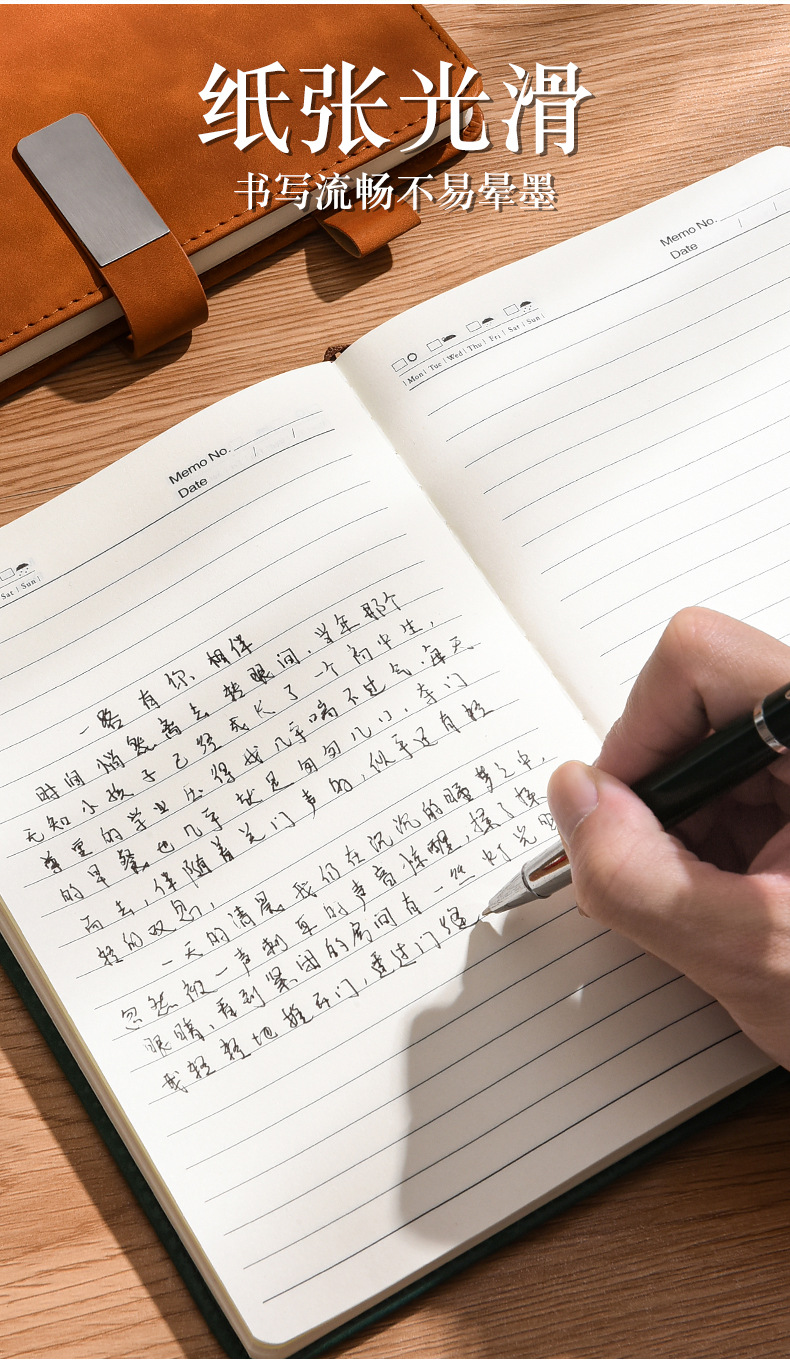 纸张光滑
书写流畅不易晕墨
Memo No.
Date
Mon Tue Wed Thu Fri Sat Sun
Memo No.
Date
Sat Sun
一路有你相伴
时间悄然离去转眼间，当年那个
无知小孩子已经成长了一个初中生，
繁重的学业压得我几乎喘不过气.每天
的早餐也几乎就是匆匆几口，夺门
而去，伴随着关门声的，似乎还有轻
轻的叹息，
一天的清晨我们在沉沉的睡梦之中，
忽然被一声刺耳的声音惊醒，揉了揉
眼睛，看到紧闭的房间有一丝灯光
我轻轻地推开门，透过门缝